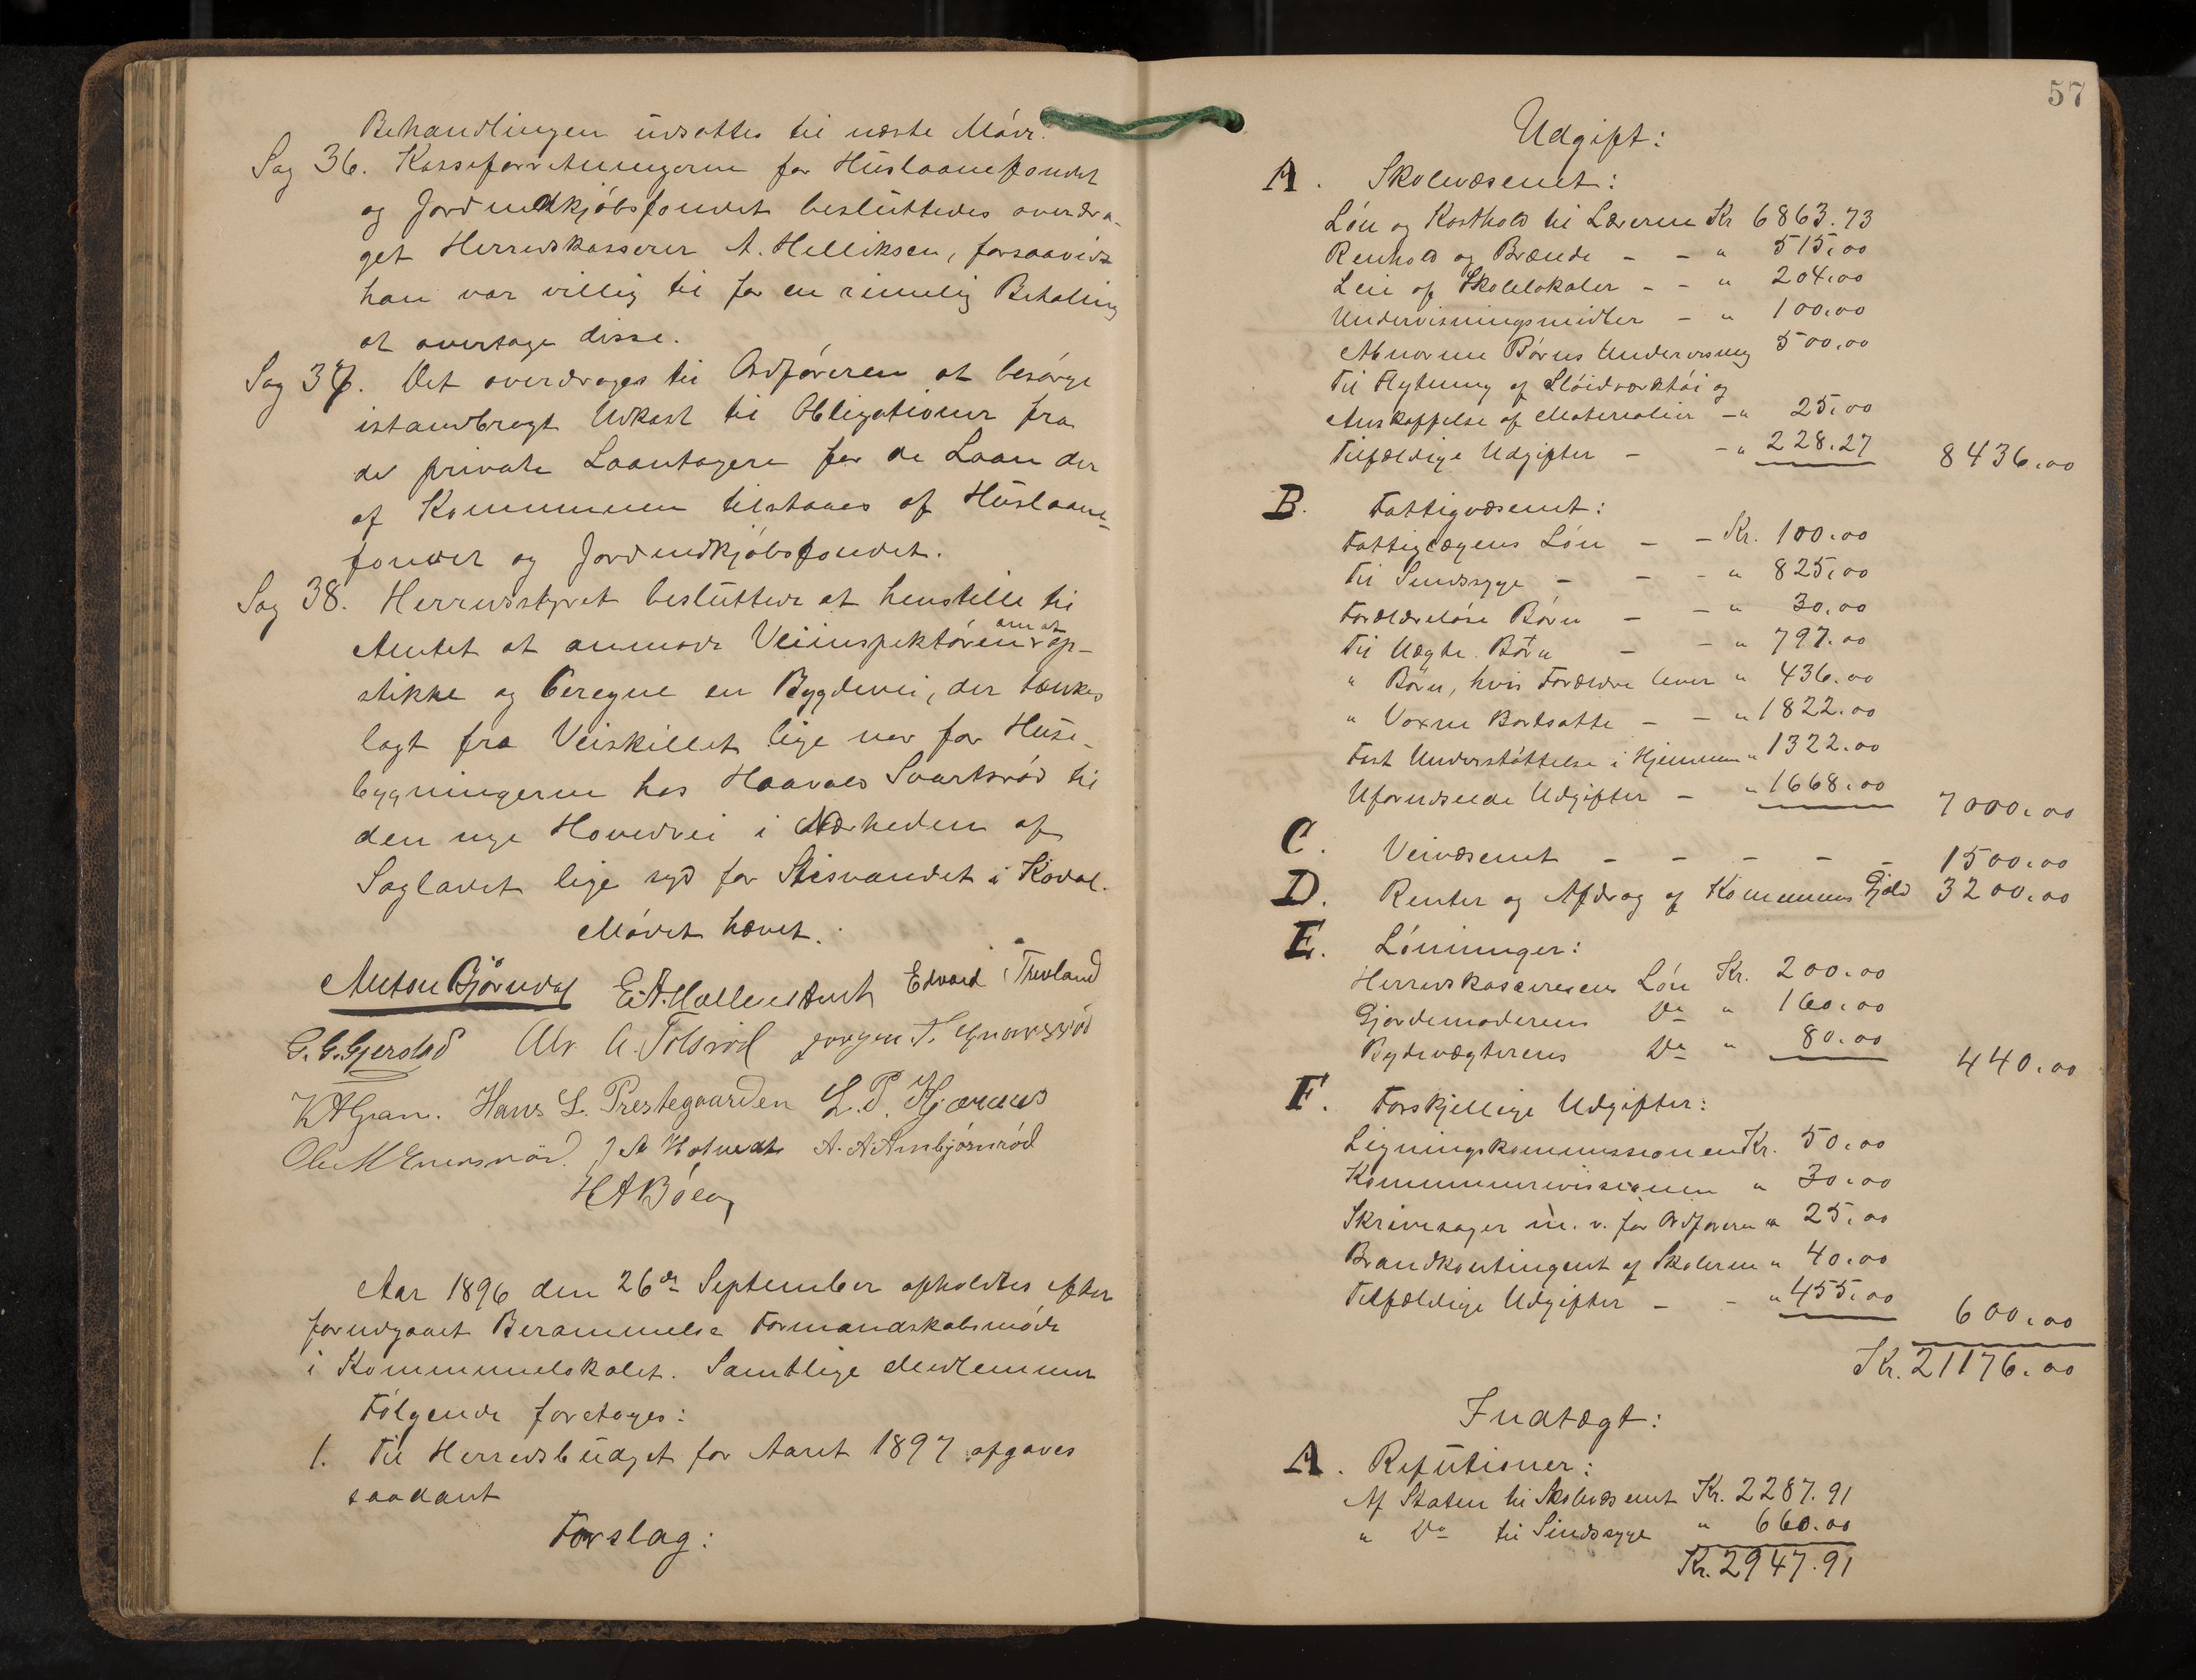 Behandlingen udsattes til næste Möde.
Sag 36. Kasseforretningerne for Huslaanefondet
og Jordindkjöbsfondet besluttedes overdra-
get Herredskasserer A. Helliksen, forsaavidt
han var villig til for en rimelig Betaling
at overtage disse.
Sag 37. Det overdroges til Ordföreren at besörge
istandbragt Udkast til Obligationer fra
de private Laantagere for de Laan der
af Kommunen tilstaaes af Huslaane-
fondet og Jordindkjöbsfondet.
Sag 38. Herredsstyret besluttede at henstille til
Amtet at anmode Veiinspektören om at op-
stikke og beregne en Bygdevei, der tænkes
lagt fra Veiskillet lige ner for Huse-
bygningerne hos Haavald Svartsröd til
den nye Hovedvei i Nærheden af
Saglavet lige syd for Stisvandet i Kodal.
Mödet hævet.
Anton Bjöndal E. A. Edvard Trevland
G. G. Gjerstad Alv. A. Tolsröd Jörgen T.
K A Gran. Hans L. Prestegaarden L. P. Hjærnes
Ole M J A Hotvedt A. A. Arnbjörnröd
H A Böen
Aar 1896 den 26de September afholdtes efter
forudgaaet Berammelse Formandskabsmöde
i Kommunelokalet. Samtlige Medlemmer
Fölgende foretoges:
1. Til Herredsbudget for Aaret 1897 afgaves
saadant
Forslag:
57
Udgift:
A. Skolevæsenet:
Lön og Kosthold til Lærerne Kr 6863.73
Renhold og Brænde - - " 515,00
Leie af Skolelokaler - - " 204.00
Undervisningsmidler - " 100.00
Abnorme Börns Undervisning 500.00
Til Flytning af Slöidværktöi og
Anskaffelse af Materialier - " 25,00
Tilfældige Udgifter - - " 228.27 8436.00
B. Fattigvæsenet:
Fattiglægens Lön - - Kr. 100.00
Til Sindssyge - - - " 825,00
Forældrelöse Börn - - " 30.00
Til Uægte Börn - - " 797.00
" Börn, hvis Forældre lever " 436.00
" Voxne Bortsatte - - " 1822.00
Fast Understöttelse i Hjemmene " 1322.00
Uforudseede Udgifter - " 1668.00 7000.00
C. Veivæsenet - - - - - 1500.00
D. Renter og Afdrag af Kommunens Gjæld 3200.00
E. Lönninger:
Herredskassererens Lön Kr. 200.00
Gjordemoderens Do " 160.00
Bydevægterens Do " 80.00 440.00
F. Forskjellige Udgifter:
Ligningskommissionen Kr. 50.00
Kommunerevissionen " 30.00
Skrivesager m. v. for Ordföreren " 25.00
Brandkontingent af Skolerne " 40.00
Tilfældige Udgifter - - " 455,00 600.00
Kr. 21176.00
Indtægt:
A. Refutioner:
Af Staten til Skolevæsenet Kr. 2287.91
" Do til Sindssyge " 660.00
Kr. 2947.91